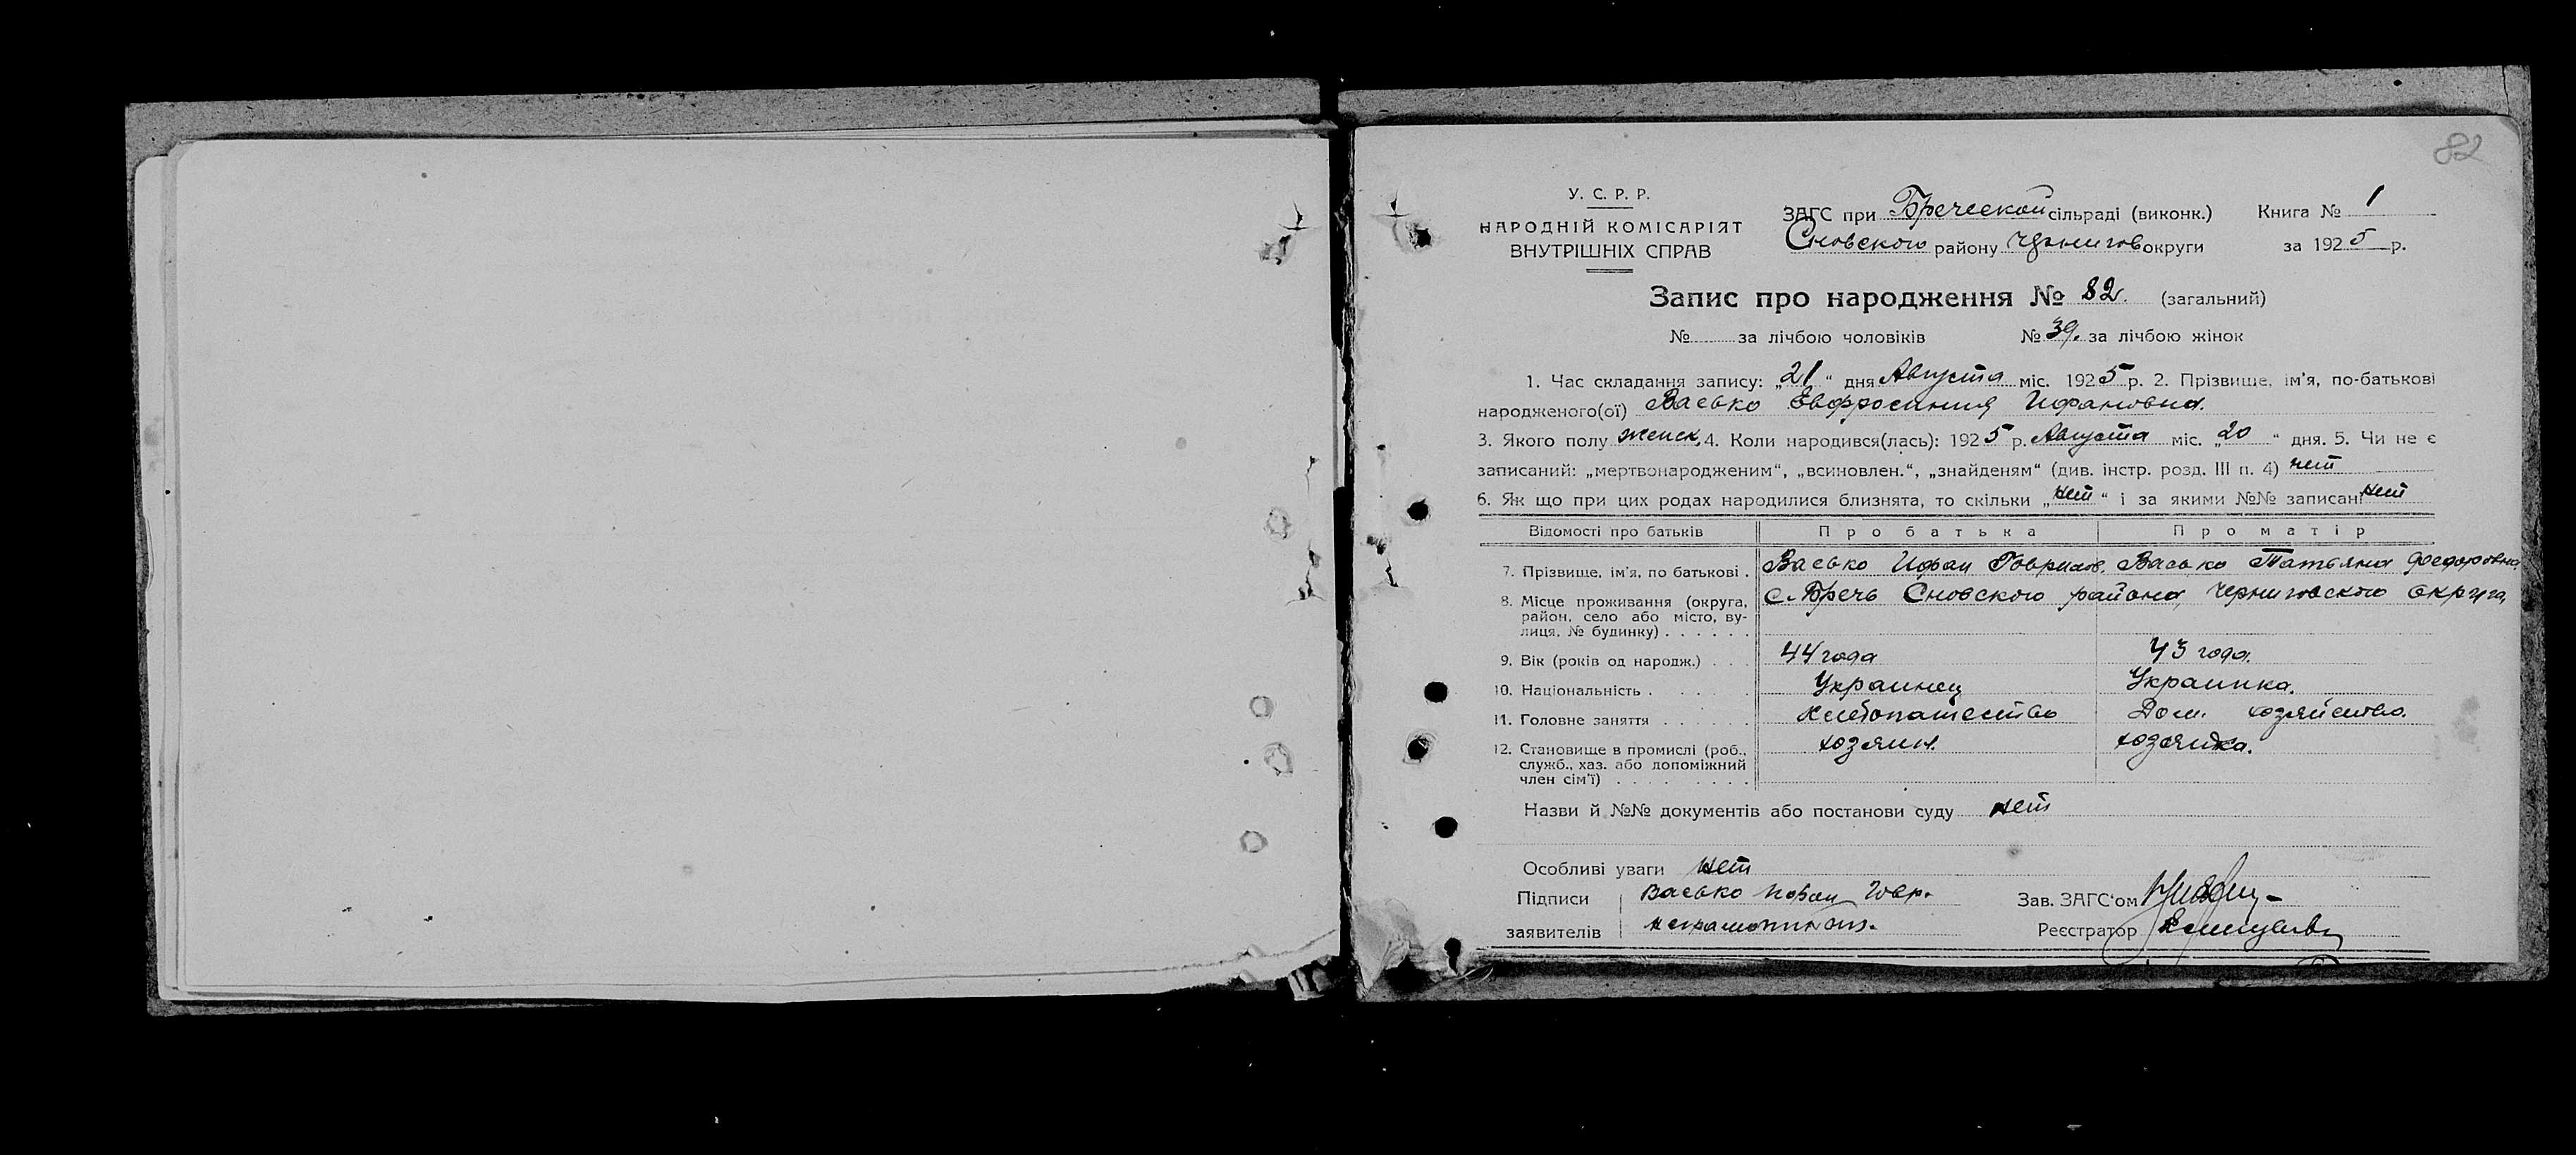 82
У. С. Р. Р.
НАРОДНІЙ КОМІСАРІЯТ
ВНУТРІШНІХ СПРАВ
ЗАГС при Бреческой сільраді (виконк.) Книга № 1
Сновского району Чернигов округи за 1925 р.
Запис про народження № 82. (загальний)
№ за лічбою чоловіків № 39. за лічбою жінок
1. Час складання запису: „21“ дня Августа міс. 1925 р. 2. Прізвище, ім'я, по-батькові
народженого(ої) Васько Евфросиния Ифановна.
3. Якого полу женск. 4. Коли народився(лась): 1925 р. Августа міс. „20“ дня. 5. Чи не є
записаний: „мертвонародженим“, „всиновлен.“, „знайденям“ (див. інстр. розд. III п. 4) нет
6. Як що при цих родах народилися близнята, то скільки „нет“ і за якими №№ записані нет
Відомості про батьків Про батька Про матір
7. Прізвище, ім'я, по батькові . Васько Ифан Гаврилов. Васько Татьяна Федоровна
8. Місце проживання (округа, с. Бречь Сновского района, Черниговского округа,
район, село або місто, ву-
лиця, № будинку) . . . . . .
9. Вік (років од народж.) . . . 44 года 43 года.
10. Національність . . . . Украинец Украинка.
11. Головне заняття . . . . . . хлебопашество Дом. хозяйство.
12. Становище в промислі (роб., хозяин. хозяйка.
служб., хаз. або допоміжний
член сім'ї) . . . . . . . . .
Назви й №№ документів або постанови суду нет
Особливі уваги нет
Підписи Васько Ифан Гавр. Зав. ЗАГС'ом
заявителів неграмотный. Реєстратор